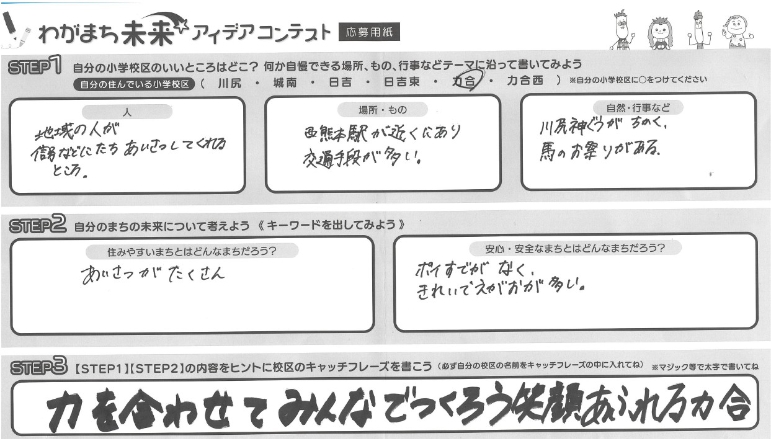 わがまち未来アイデアコンテスト 応募用紙
STEP1 自分の小学校区のいいところはどこ？ 何か自慢できる場所、もの、行事などテーマに沿って書いてみよう
自分の住んでいる小学校区 （ 川尻 ・ 城南 ・ 日吉 ・ 日吉東 ・ 力合 ・ 力合西 ） ※自分の小学校区に○をつけてください
人
地域の人が
信号などにたちあいさつしてくれる
ところ。
場所・もの
西熊本駅が近くにあり
交通手段が多い。
自然・行事など
川尻神ぐうがちかく、
馬のお祭りがある。
STEP2 自分のまちの未来について考えよう《 キーワードを出してみよう 》
住みやすいまちとはどんなまちだろう？
あいさつがたくさん
安心・安全なまちとはどんなまちだろう？
ポイすてがなく、
きれいでえがおが多い。
STEP3 【STEP1】【STEP2】の内容をヒントに校区のキャッチフレーズを書こう（必ず自分の校区の名前をキャッチフレーズの中に入れてね） ※マジック等で太字で書いてね
力を合わせてみんなでつくろう笑顔あふれる力合